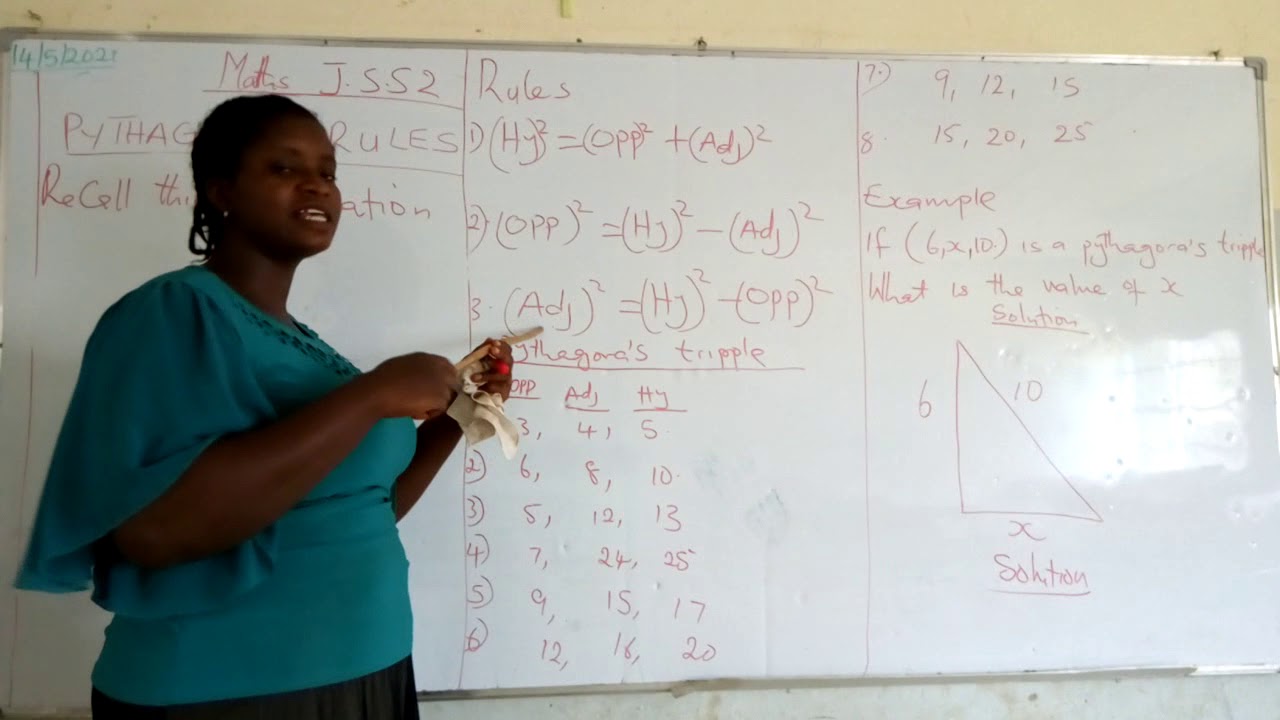 14/5/2021
Maths J.S.S2
PYTHAG RULES
ReCell thi ation
Rules
1) (Hy)² = (OPP)² + (Adj)²
2) (OPP)² = (Hy)² - (Adj)²
3. (Adj)² = (Hy)² - (OPP)²
ythagora's tripple
OPP Adj Hy
3, 4, 5.
2) 6, 8, 10.
3) 5, 12, 13
4) 7, 24, 25
5) 9, 15, 17
6) 12, 16, 20
7.) 9, 12, 15
8. 15, 20, 25
Example
If (6,x,10.) is a pythagora's tripple
What is the value of x
Solution
6
10
x
Solution